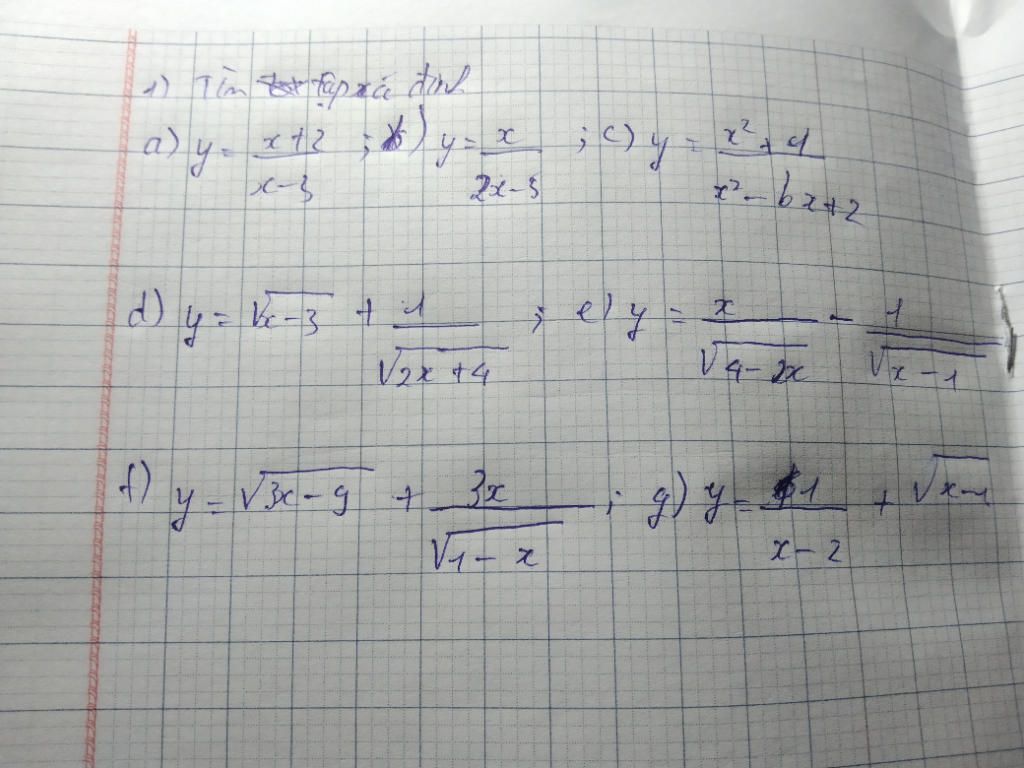 1) Tìm tập xác định
a) y = (x+2)/(x-3) ; b) y = x/(2x-3) ; c) y = (x²+1)/(x²-6x+2)
d) y = √(x-3) + 1/√(2x+4) ; e) y = x/√(4-2x) - 1/√(x-1)
f) y = √(3x-9) + 3x/√(1-x) ; g) y = 1/(x-2) + √(x-1)